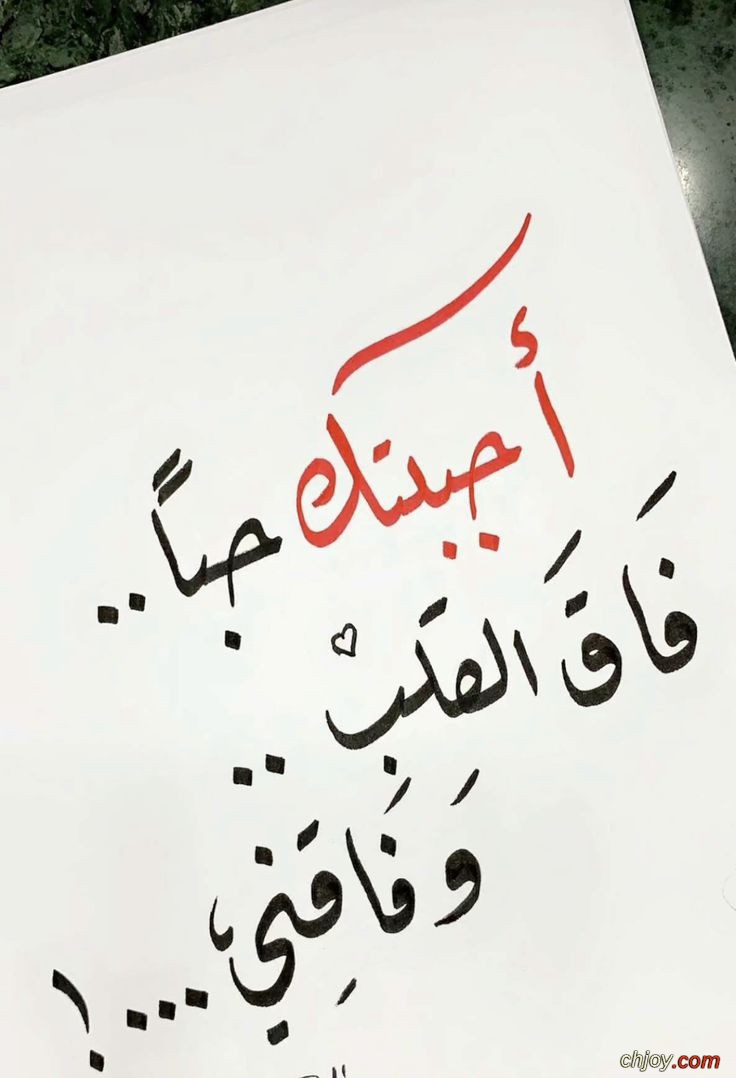 أحببتك حباً..
فَاقَ القلبْ ..
وَفَاقِني، ...!
chjoy.com